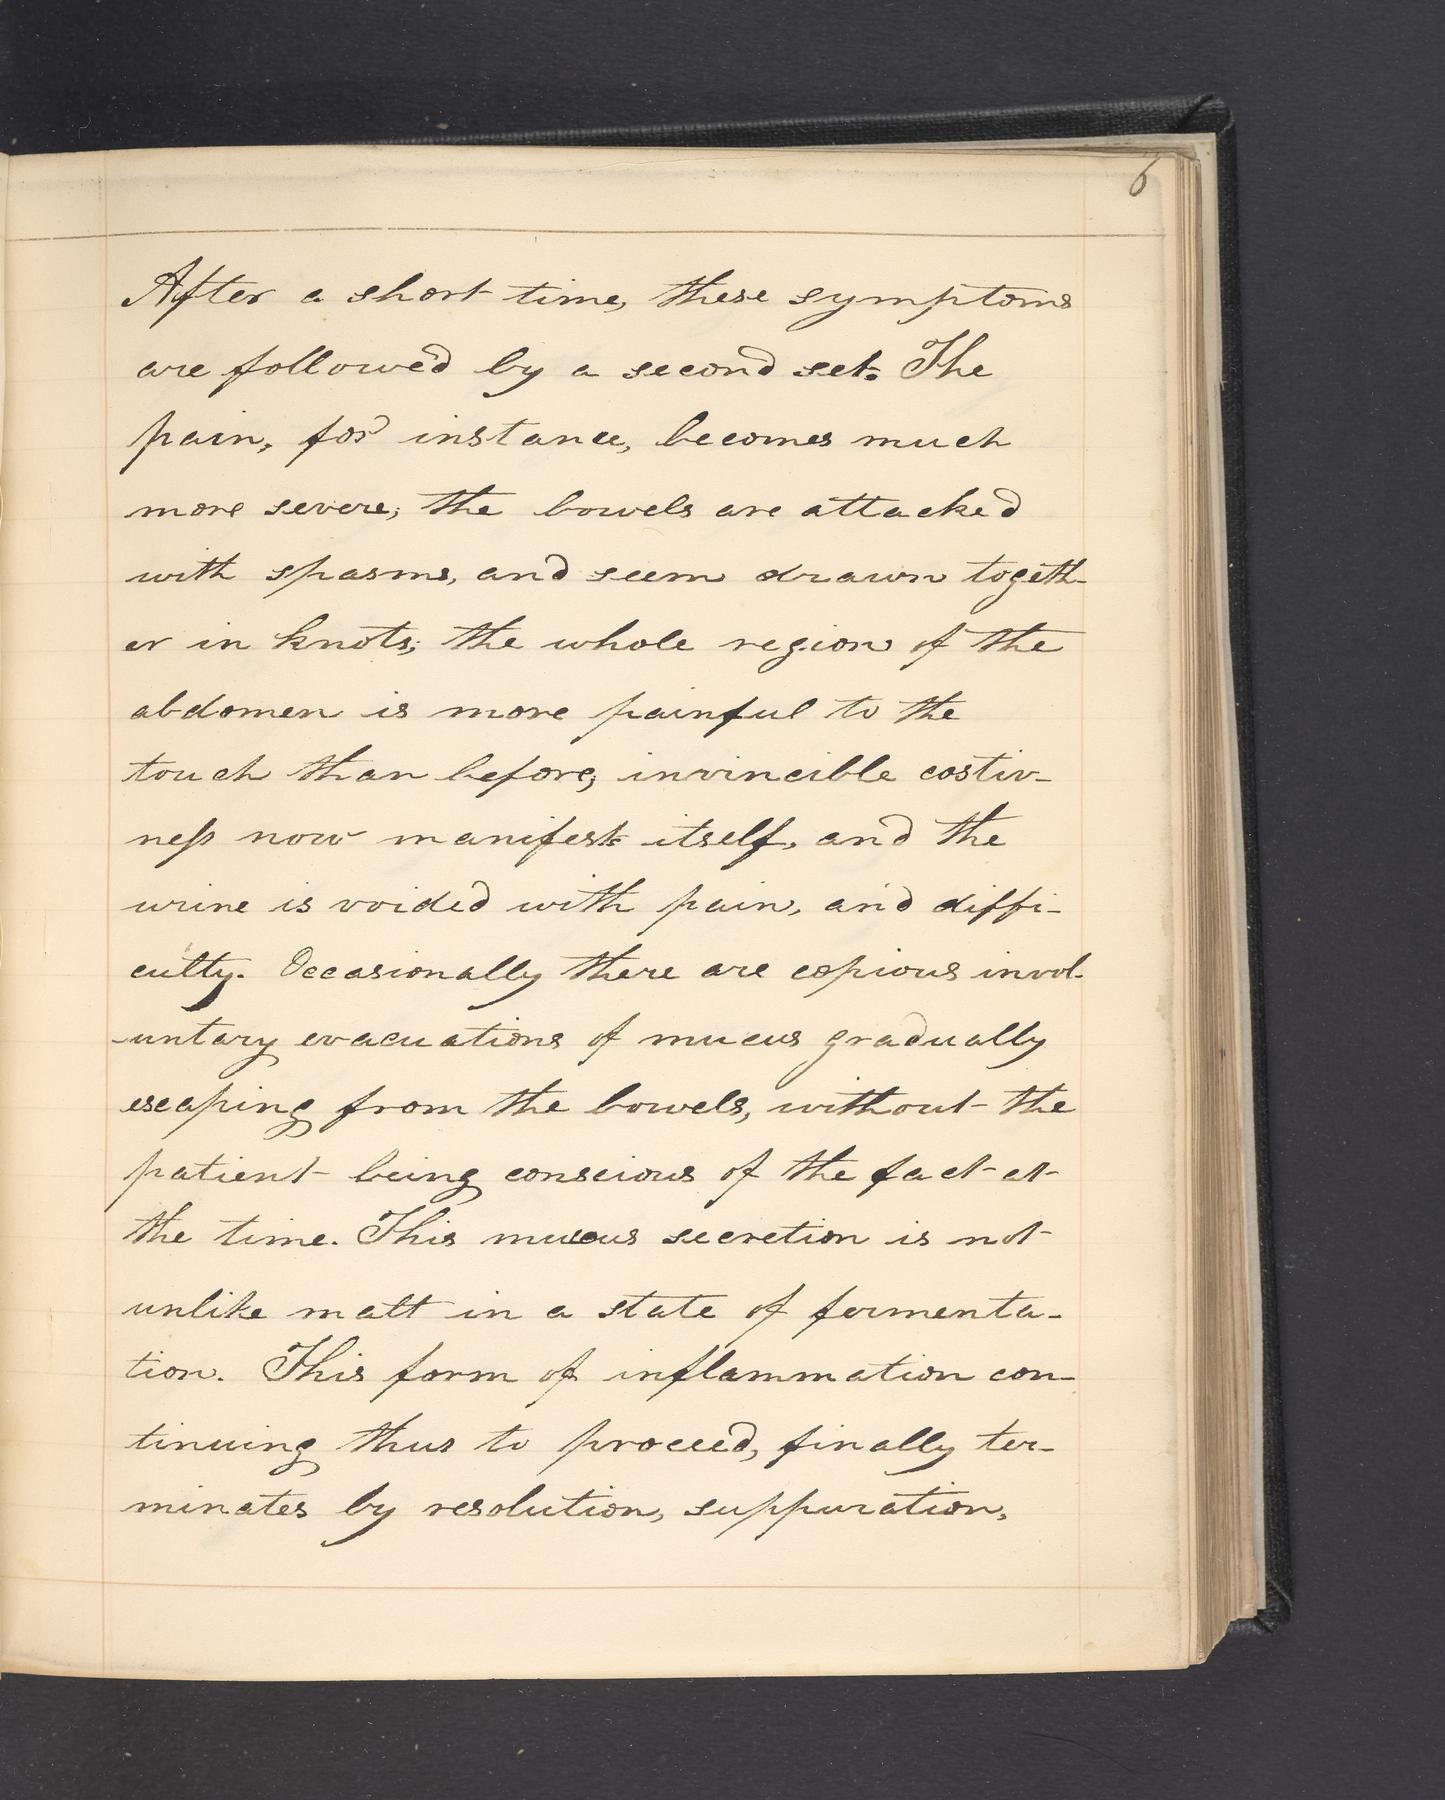 6
After a short time, these symptoms
are followed by a second set. The
pain, for instance, becomes much
more severe; the bowels are attacked
with spasms, and seem drawn togeth-
er in knots; the whole region of the
abdomen is more painful to the
touch than before; invincible costiv-
ness now manifests itself, and the
urine is voided with pain, and diffi-
culty. Occasionally there are copious invol-
-untary evacuations of mucus gradually
escaping from the bowels, without the
patient being conscious of the fact at
the time. This mucous secretion is not
unlike malt in a state of fermenta-
tion. This form of inflammation con-
tinuing thus to proceed, finally ter-
minates by resolution, suppuration,